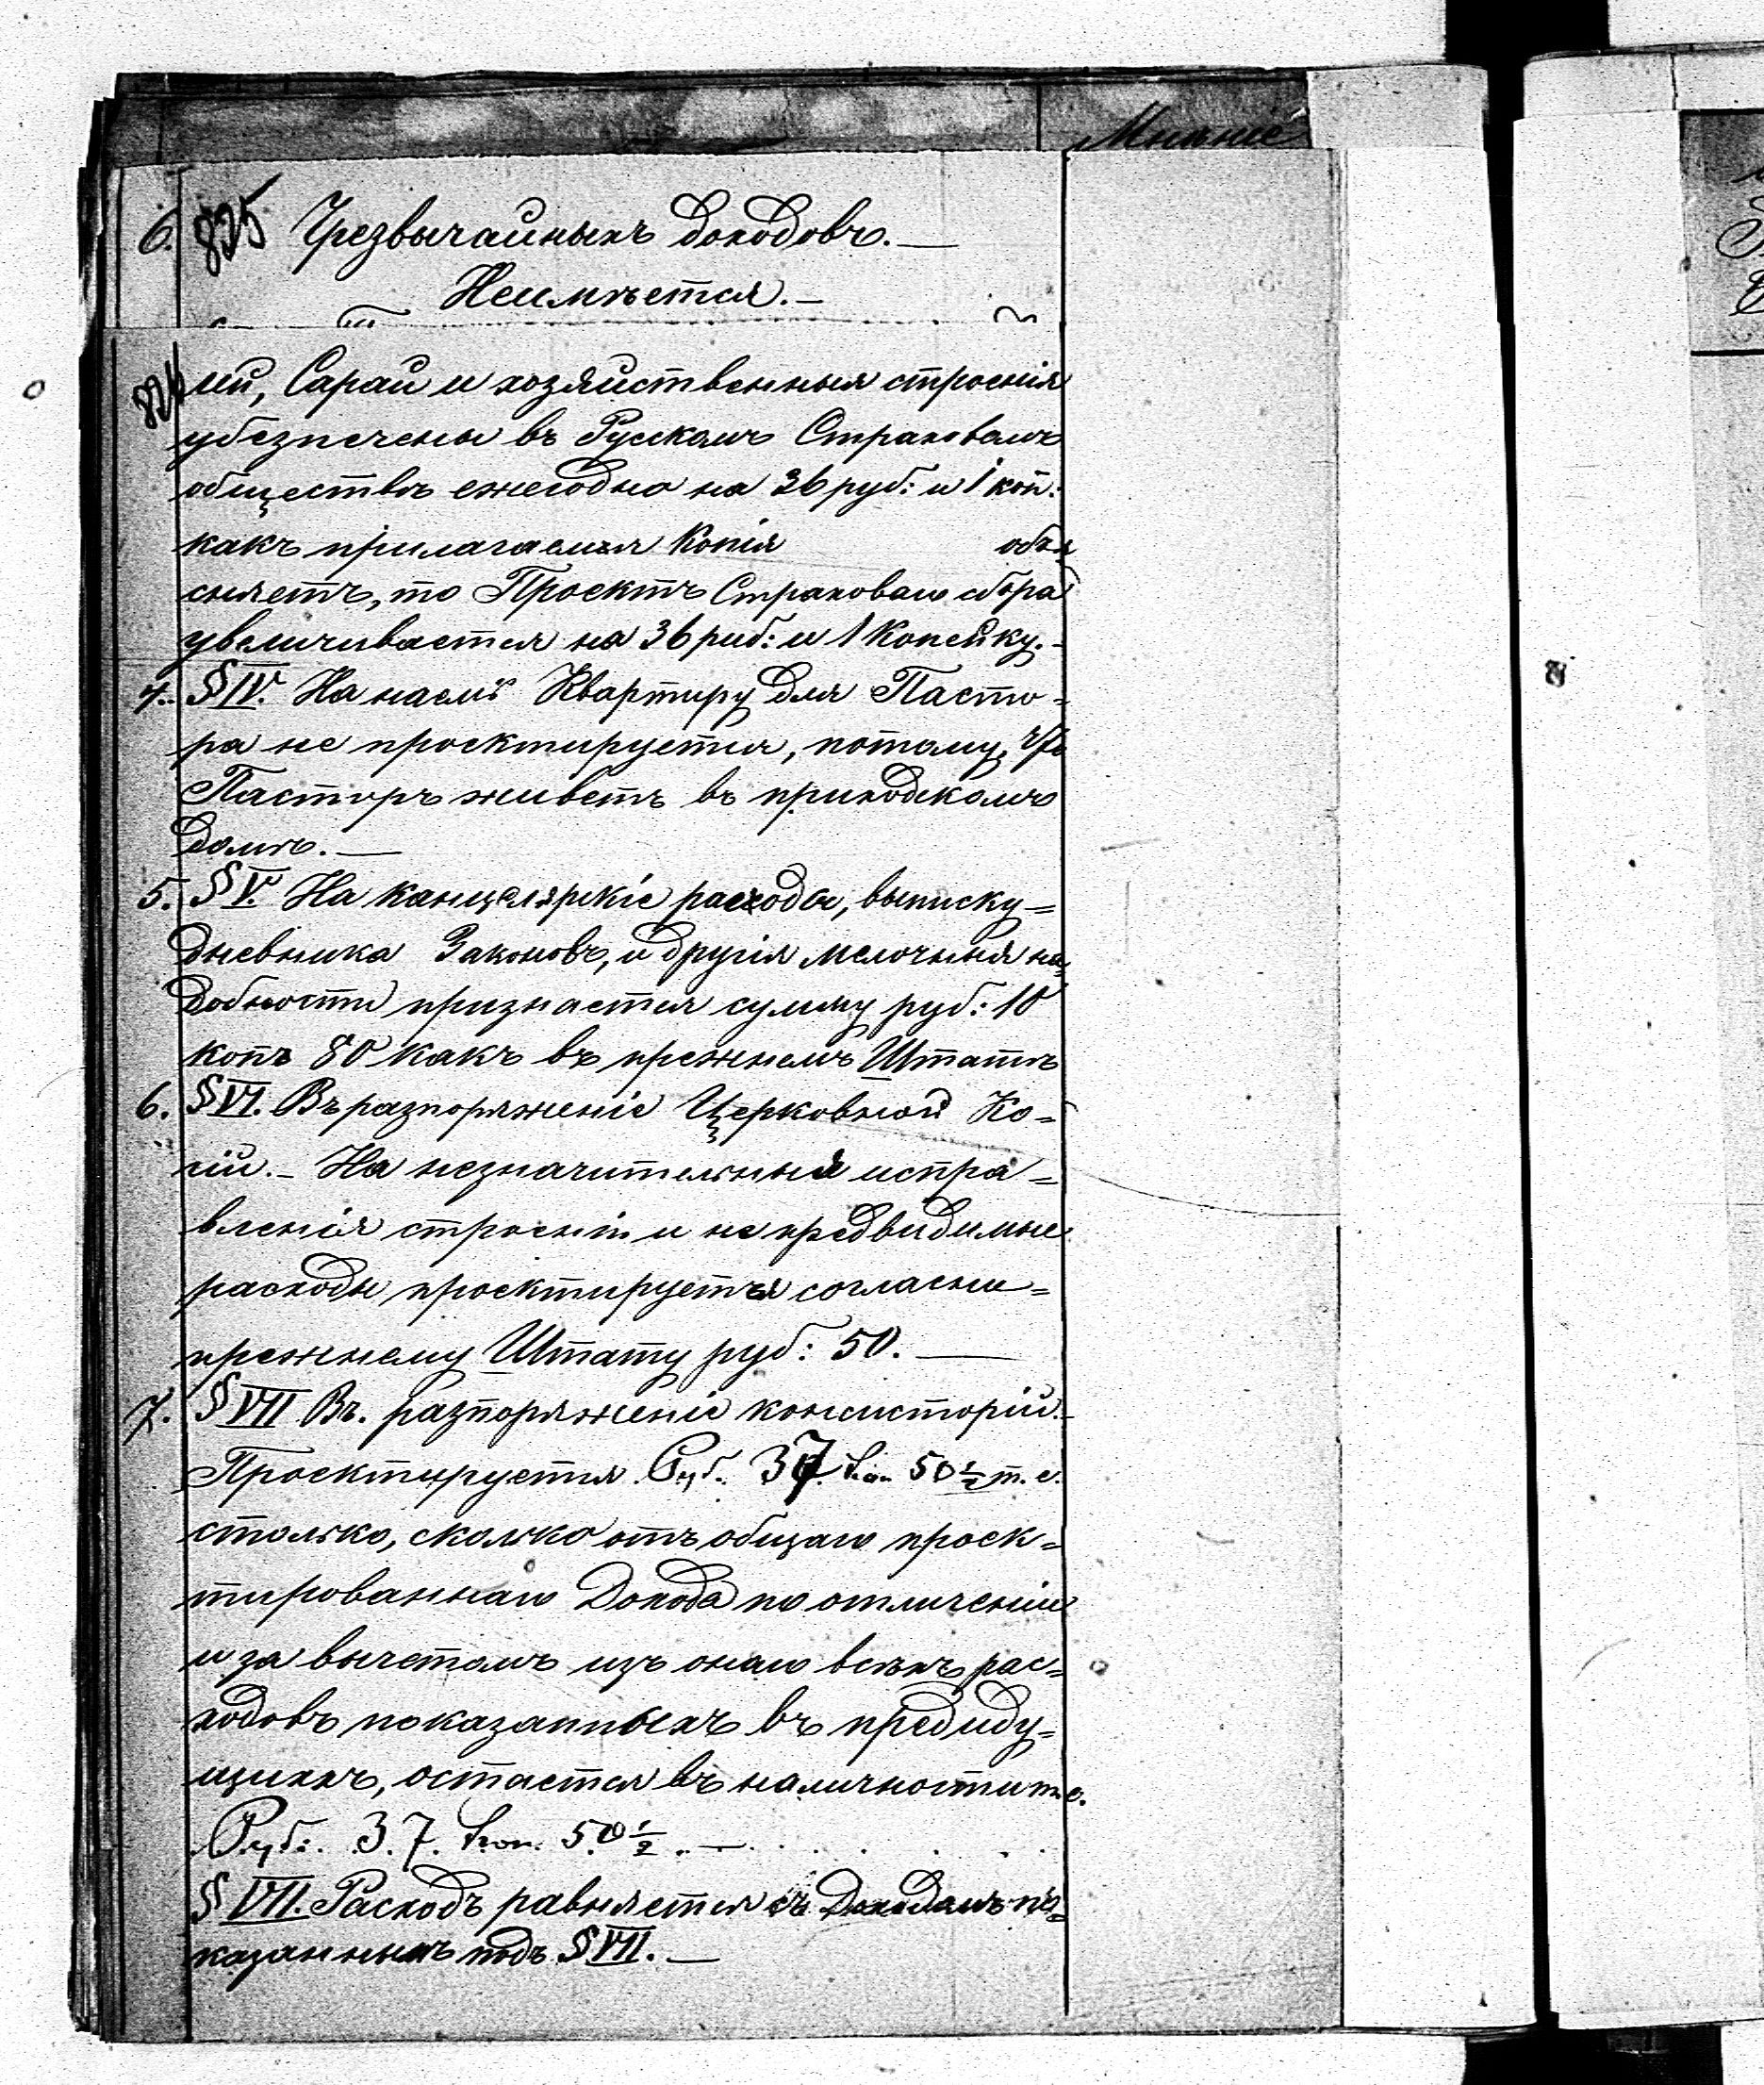 Мнѣніе
6. 825 Чрезвычайныхъ доходовъ. —
Неимѣется. —
826 ий, Сарай и хозяйственныя строенія
убезпечены въ Русскомъ Страховомъ
обществѣ ежегодно на 36 руб: и 1 коп:
какъ прилагаемая Копія объя
сняетъ, то Проектъ Страховаго сбора
увеличивается на 36 руб: и 1 Копейку. -
4. § IV. На наемъ Квартиру для Пасто=
ра не проектируется, потому, что
Пасторъ живетъ въ приходскомъ
домѣ. —
5. § V. На канцелярскіе расходы, выписку=
дневника Законовъ, и другія мелочныя на=
добности признается сумму руб: 10
копъ 80 какъ въ прежнемъ Штатѣ
6. § VI. Въ разпоряженіе Церковной Ко=
гіи. – На незначительныя испра=
вленія строеній и не предвидимые
расходы проектируется согласно=
прежнему Штату руб: 50. —
7. § VII Въ. разпоряженіе консисторіи. -
Проектируется Руб. 37 Коп 50 ½ т. е.
столько, сколько отъ общаго проек=
тированнаго Дохода по отличеніи
и за вычетомъ изъ онаго всѣхъ рас=
ходовъ показанныхъ въ предиду=
щихъ, остается въ наличности т. е.
Руб: 37. Коп. 50 ½. —
§ VII. Расходъ равняется съ Доходамъ по=
казаннымъ подъ § VII. —